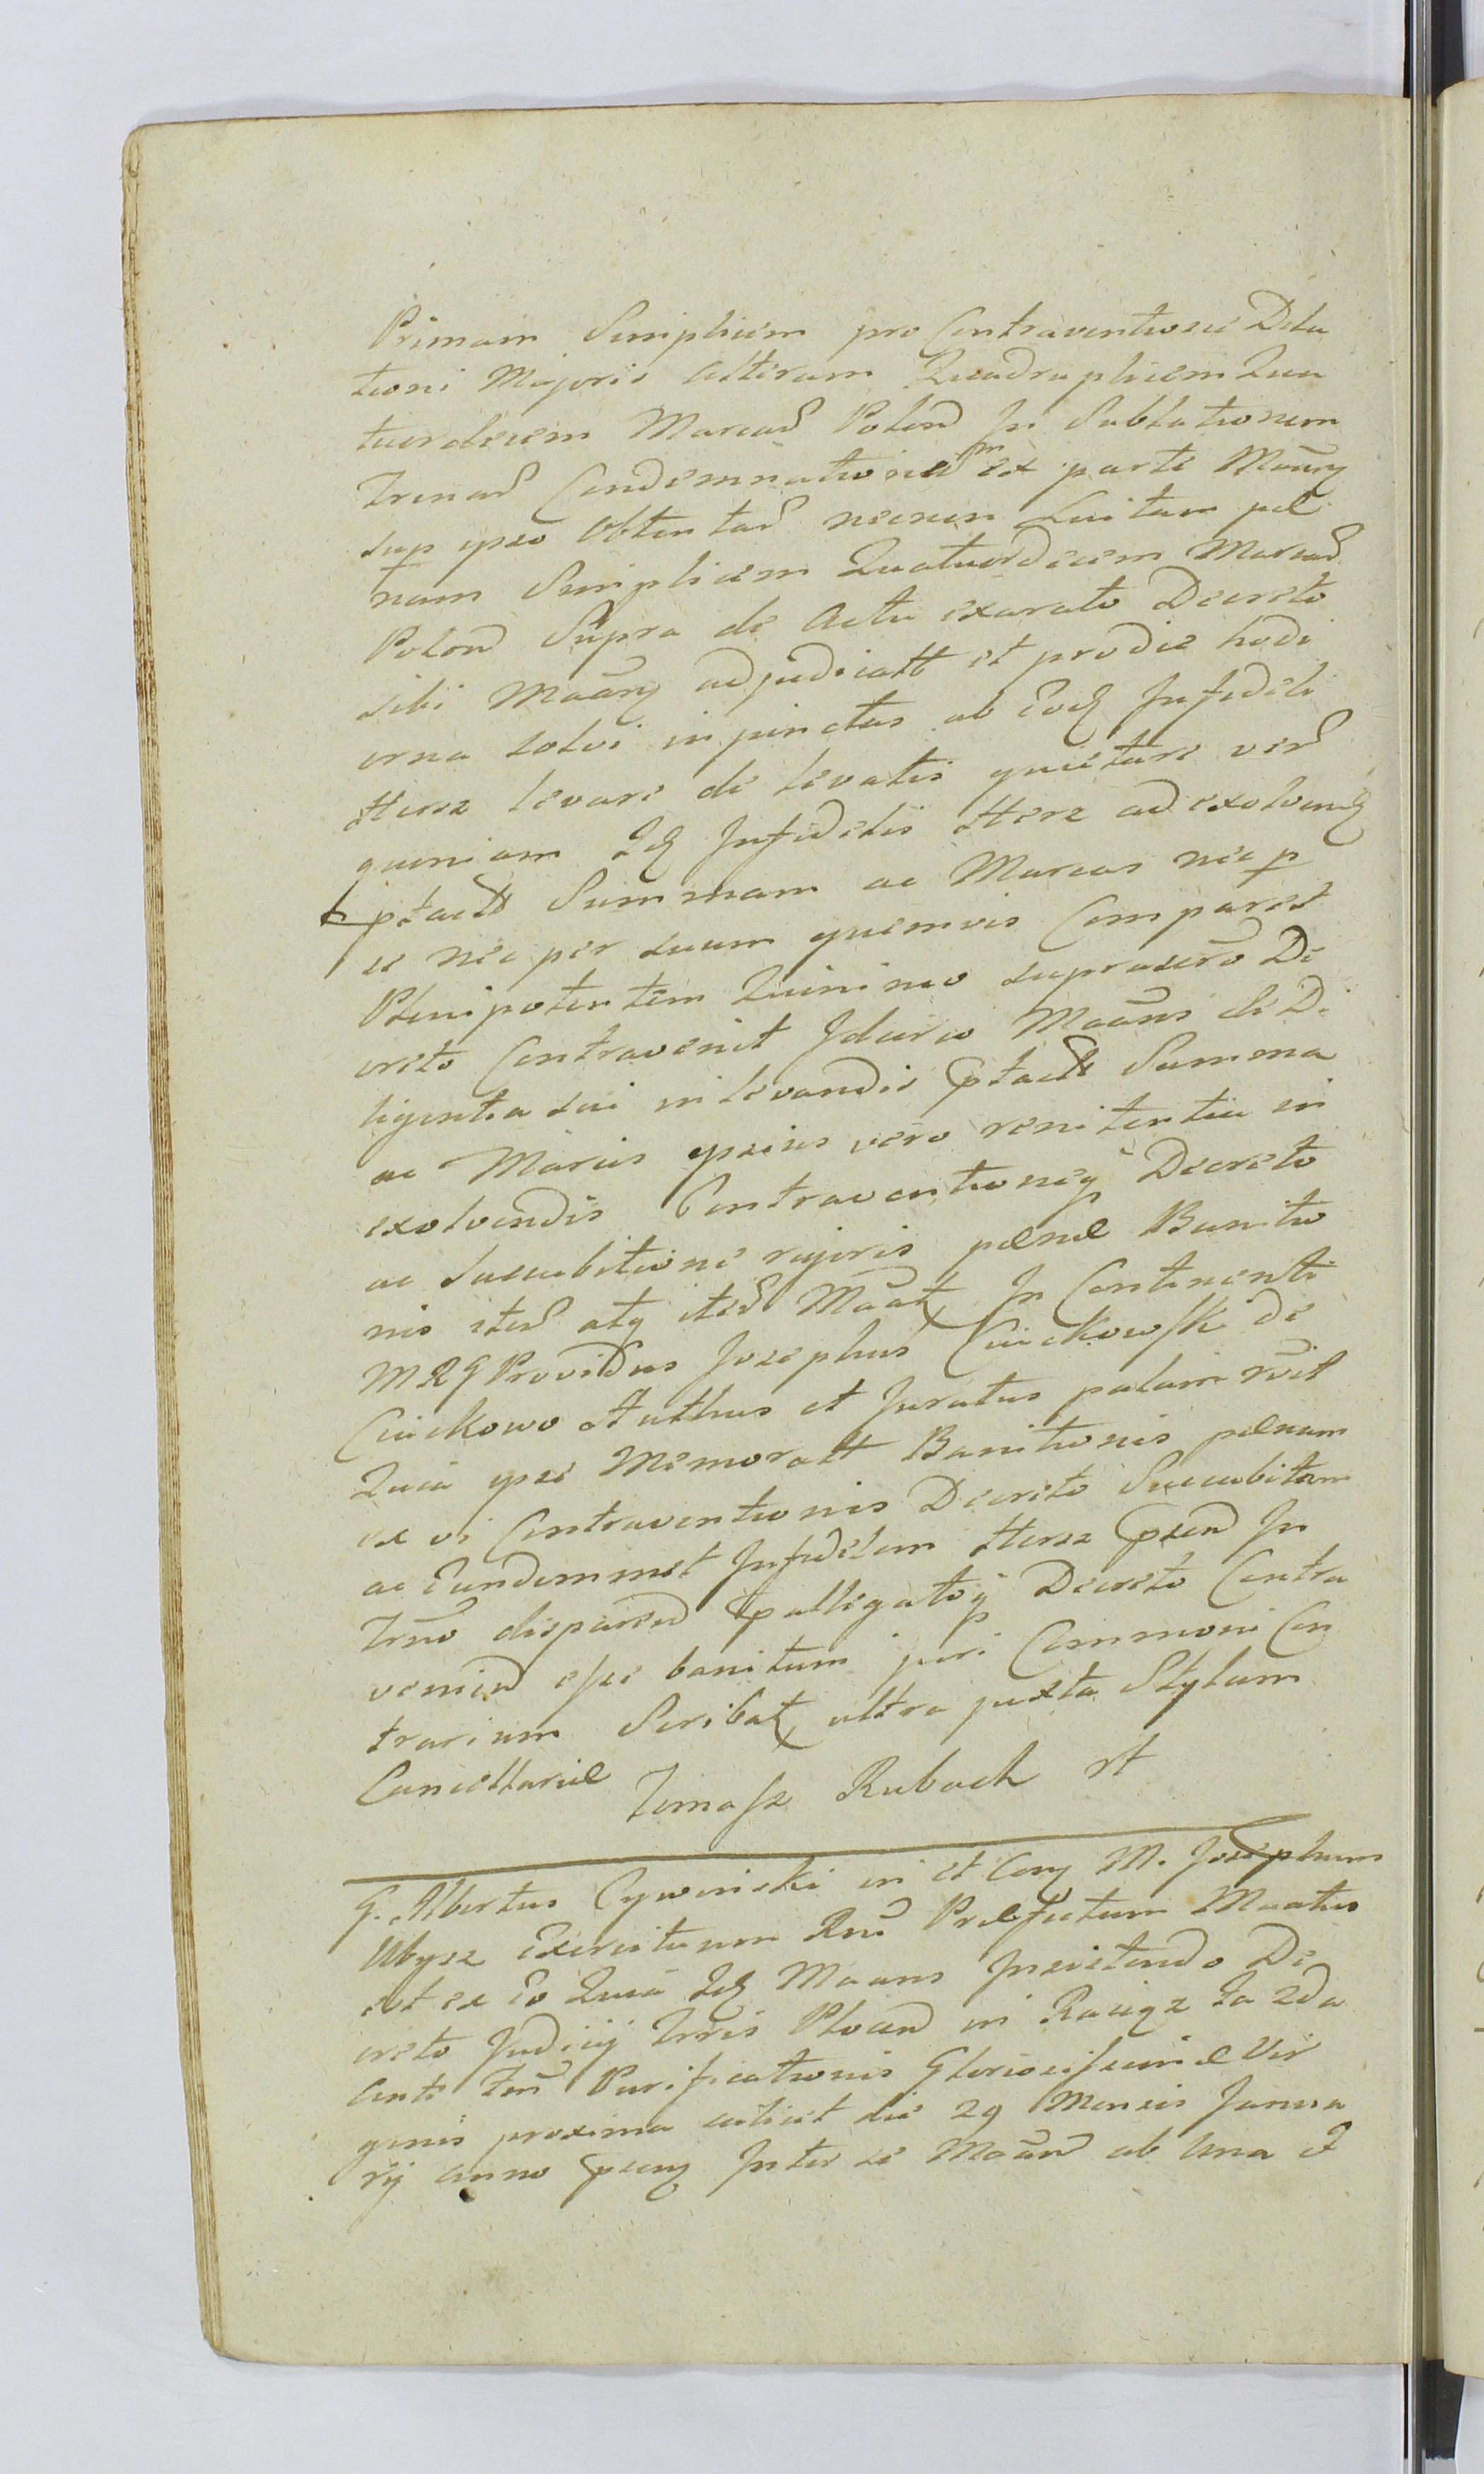 Primam Simplicem pro Contraventione Dila
tioni Majoris alteram Quadruplicem Qua
tuordecem Marcar Polon In Sublationem
trinar Condemnationum ex parte Maãnz
sup ipso Obtentar necnon Luitam pæ
nam Simplicem Quatuordecem Marcar
Polon Supra de Actu exarato Decreto
sibi Maãnz adjudicatt et prodie hodi
erna solvi inpinctas ab Eodz Infideli
Hersz levare de levatis quietare vers
quoniam Idz Infidelis Hersz ad exolvendz
ptactt Summam ac Marcas nec p
se nec per suum quemvis Comparet
Plenipotentem Quinimo suprascro De
creto Contravenit Idcirco Maãns de Di
ligentia sui in levandis ptactt Summa
ac Marcis ipsius vero renitentia in
exolvendis Contraventioneq Decreto
ac Succubitione rigoris pænæ Banitio
nis iter atq iter Maãt In Continenti
MRG Providus Josephus Ciuckowski de
Ciuckowo Authus et Juratus palam rõit
Quia ipse Memoratt Banitionis pænam
ex vi Contraventionis Decreto Succubitam
ac Eundemmet Infidelem Hersz psend In
trño disparend palligatoq Decreto Contra
venien esse banitum juri Communi Con
trarium Scribat ultra juxta Stylum
Cancellariæ Tomasz Rubach rt
G. Albertus Cywinski in et Conz M. Josephum
Ubysz Exercituum Rni Præfectum Maatus
est ex Eo Quia Idz Maans Insistendo De
creto Judicij Trris Plocen in Raciąz Ia 2da
Ante Fest Purificationis Gloriosissimæ Vir
ginis proxima scilicet die 29 Mensis Janua
rij anno psenz Inter se Maãn ab Una et